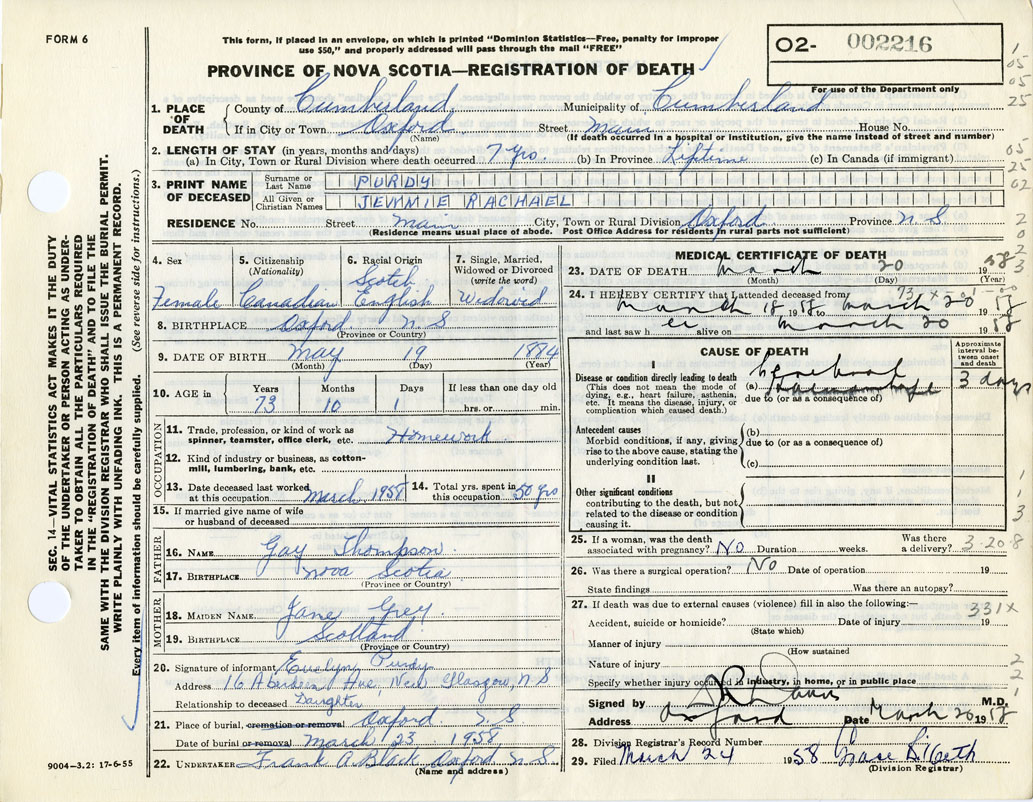 FORM 6
This form, if placed in an envelope, on which is printed "Dominion Statistics—Free, penalty for improper
use $50," and properly addressed will pass through the mail "FREE"
O2- 002216
PROVINCE OF NOVA SCOTIA—REGISTRATION OF DEATH
For use of the Department only
1. PLACE OF DEATH
County of Cumberland Municipality of Cumberland
If in City or Town Oxford Street Main House No.
(Name) (If death occurred in a hospital or institution, give the name instead of street and number)
2. LENGTH OF STAY (in years, months and days)
(a) In City, Town or Rural Division where death occurred 7 yrs. (b) In Province Lifetime (c) In Canada (if immigrant)
3. PRINT NAME OF DECEASED
Surname or Last Name PURDY
All Given or Christian Names JEMMIE RACHAEL
RESIDENCE No. Street Main City, Town or Rural Division Oxford Province N S
(Residence means usual place of abode. Post Office Address for residents in rural parts not sufficient)
4. Sex Female
5. Citizenship (Nationality) Canadian
6. Racial Origin Scotch English
7. Single, Married, Widowed or Divorced (write the word) Widowid
8. BIRTHPLACE Oxford N S
(Province or Country)
9. DATE OF BIRTH May 19 1884
(Month) (Day) (Year)
10. AGE in Years 73 Months 10 Days 1 If less than one day old hrs. or min.
OCCUPATION
11. Trade, profession, or kind of work as spinner, teamster, office clerk, etc. Homework
12. Kind of industry or business, as cotton-mill, lumbering, bank, etc.
13. Date deceased last worked at this occupation March 1958
14. Total yrs. spent in this occupation 50 yrs
15. If married give name of wife or husband of deceased
FATHER
16. NAME Gay Thompson
17. BIRTHPLACE Nova Scotia
(Province or Country)
MOTHER
18. MAIDEN NAME Jane Grey
19. BIRTHPLACE Scotland
(Province or Country)
20. Signature of informant Evelyn Purdy
Address 16 Aberdeen Ave, New Glasgow, N S
Relationship to deceased Daughter
21. Place of burial, cremation or removal Oxford N. S
Date of burial or removal March 23 1958
22. UNDERTAKER Frank A Black Oxford N. S.
(Name and address)
MEDICAL CERTIFICATE OF DEATH
23. DATE OF DEATH March 20 1958
(Month) (Day) (Year)
24. I HEREBY CERTIFY that I attended deceased from
March 18 1958 to March 20 1958
and last saw h er alive on March 20 1958
CAUSE OF DEATH
Approximate interval between onset and death
I
Disease or condition directly leading to death
(This does not mean the mode of dying, e.g., heart failure, asthenia, etc. It means the disease, injury, or complication which caused death.)
(a) Cerebral haemorrhage 3 days
due to (or as a consequence of)
Antecedent causes
Morbid conditions, if any, giving rise to the above cause, stating the underlying condition last.
(b)
due to (or as a consequence of)
(c)
II
Other significant conditions
contributing to the death, but not related to the disease or condition causing it.
25. If a woman, was the death associated with pregnancy? NO Duration weeks. Was there a delivery? 3-20-8
26. Was there a surgical operation? NO Date of operation 19
State findings Was there an autopsy?
27. If death was due to external causes (violence) fill in also the following:— 331X
Accident, suicide or homicide? Date of injury 19
(State which)
Manner of injury
(How sustained
Nature of injury
Specify whether injury occured in industry, in home, or in public place
Signed by M.D.
Address Oxford Date March 20 1958
28. Division Registrar's Record Number
29. Filed March 24 1958
(Division Registrar)
SEC. 14—VITAL STATISTICS ACT MAKES IT THE DUTY
OF THE UNDERTAKER OR PERSON ACTING AS UNDER-
TAKER TO OBTAIN ALL THE PARTICULARS REQUIRED
IN THE "REGISTRATION OF DEATH" AND TO FILE THE
SAME WITH THE DIVISION REGISTRAR WHO SHALL ISSUE THE BURIAL PERMIT.
WRITE PLAINLY WITH UNFADING INK. THIS IS A PERMANENT RECORD.
Every item of information should be carefully supplied. (See reverse side for instructions.)
9004—3.2: 17-6-55